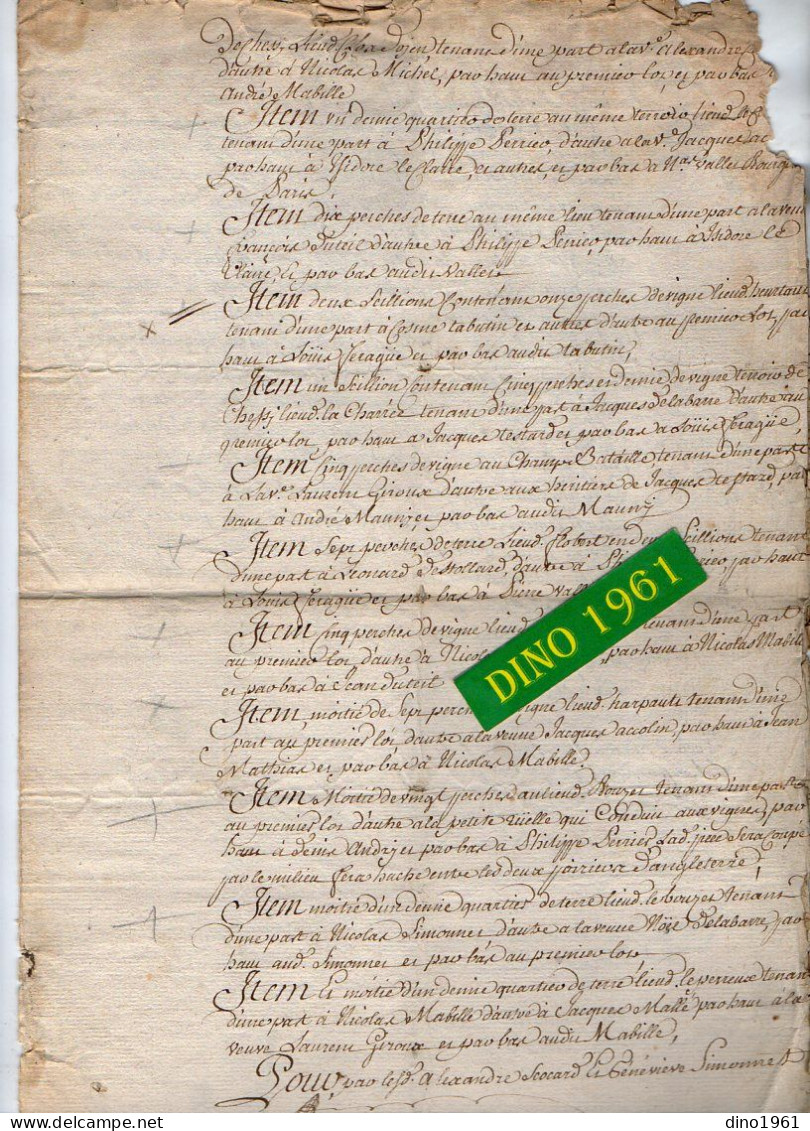 de Chessy Lieud. tenant d'une part a la v.e Alexandre
d'autre à Nicolas Michel, par haut au premier lot, et par bas
André Mabille
Item un demie quartier de terre au même terroir lieud.
tenant d'une part à Philippe Perrier, d'autre a la v.e Jacques
par haut à Isidore le Claire, et autres, et par bas à Nas Vallée Bourg
de Paris,
Item dix perches de terre au même lieu tenant d'une part a la veuve
François Duteil d'autre à Philippe Perrier, par haut à Isidore le
Claire, et par bas audit Vallée
Item deux Seillions Contenant onze perches de vigne lieud.
tenant d'une part à Cosme Labutin et autres d'autre au premier Lot, par
haut à Loüis Feragüe et par bas audit Labutin,
Item un Seillion Contenant Cinq perches et demie de vigne terroir de
Chessy lieud. la Charrée tenant d'une part à Jacques Delabarre d'autre au
premier lot, par haut a Jacques Testard et par bas a Loüis Feragüe,
Item Cinq perches de vigne au Champ Bataille, tenant d'une part
à La v.e Laurent Giroux d'autre aux heritiers de Jacques Testard, par
haut à André Mauny et par bas audit Mauny
Item Sept perches de terre Lieud. Robert en deux Seillions tenant
d'une part à Leonard de Stollard d'autre à par haut
à Louis Feragüe et par bas à Pierre
Item Cinq perches de vigne lieud. tenant d'une part
au premier lot, d'autre à Nicolas par haut à Nicolas Mabille
et par bas à Jean Duteil
DINO 1961
Item, moitié de Sept perches vigne lieud. harpauts tenant d'une
part au premier lot, d'autre a la veuve Jacques accolin, par haut à Jean
Mathias et par bas à Nicolas Mabille,
Item Moitié de vingt perches au lieud. Rouzet tenant d'une part
au premier lot d'autre a la petite ruelle qui Conduit aux vignes, par
haut à Denis Andry et par bas à Philippe Perrier Lad. piece Sera Coupé
par le milieu Sera haché entre les deux poiriers d'angleterre,
Item moitié d'un demie quartier de terre lieud. le bouzet tenant
d'une part à Nicolas Simonnet d'autre a la veuve Noze Delabarre, par
haut aud. Simonnet et par bas au premier lot,
Item Et moitié d'un demie quartier de terre lieud. le perreux tenant
d'une part à Nicolas Mabille d'autre à Jacques Mallé par haut a la
veuve Laurent Giroux et par bas audit Mabille,
Pour, par lesd. Alexandre Scocard Et Géneviéve Simonnet
dino1961